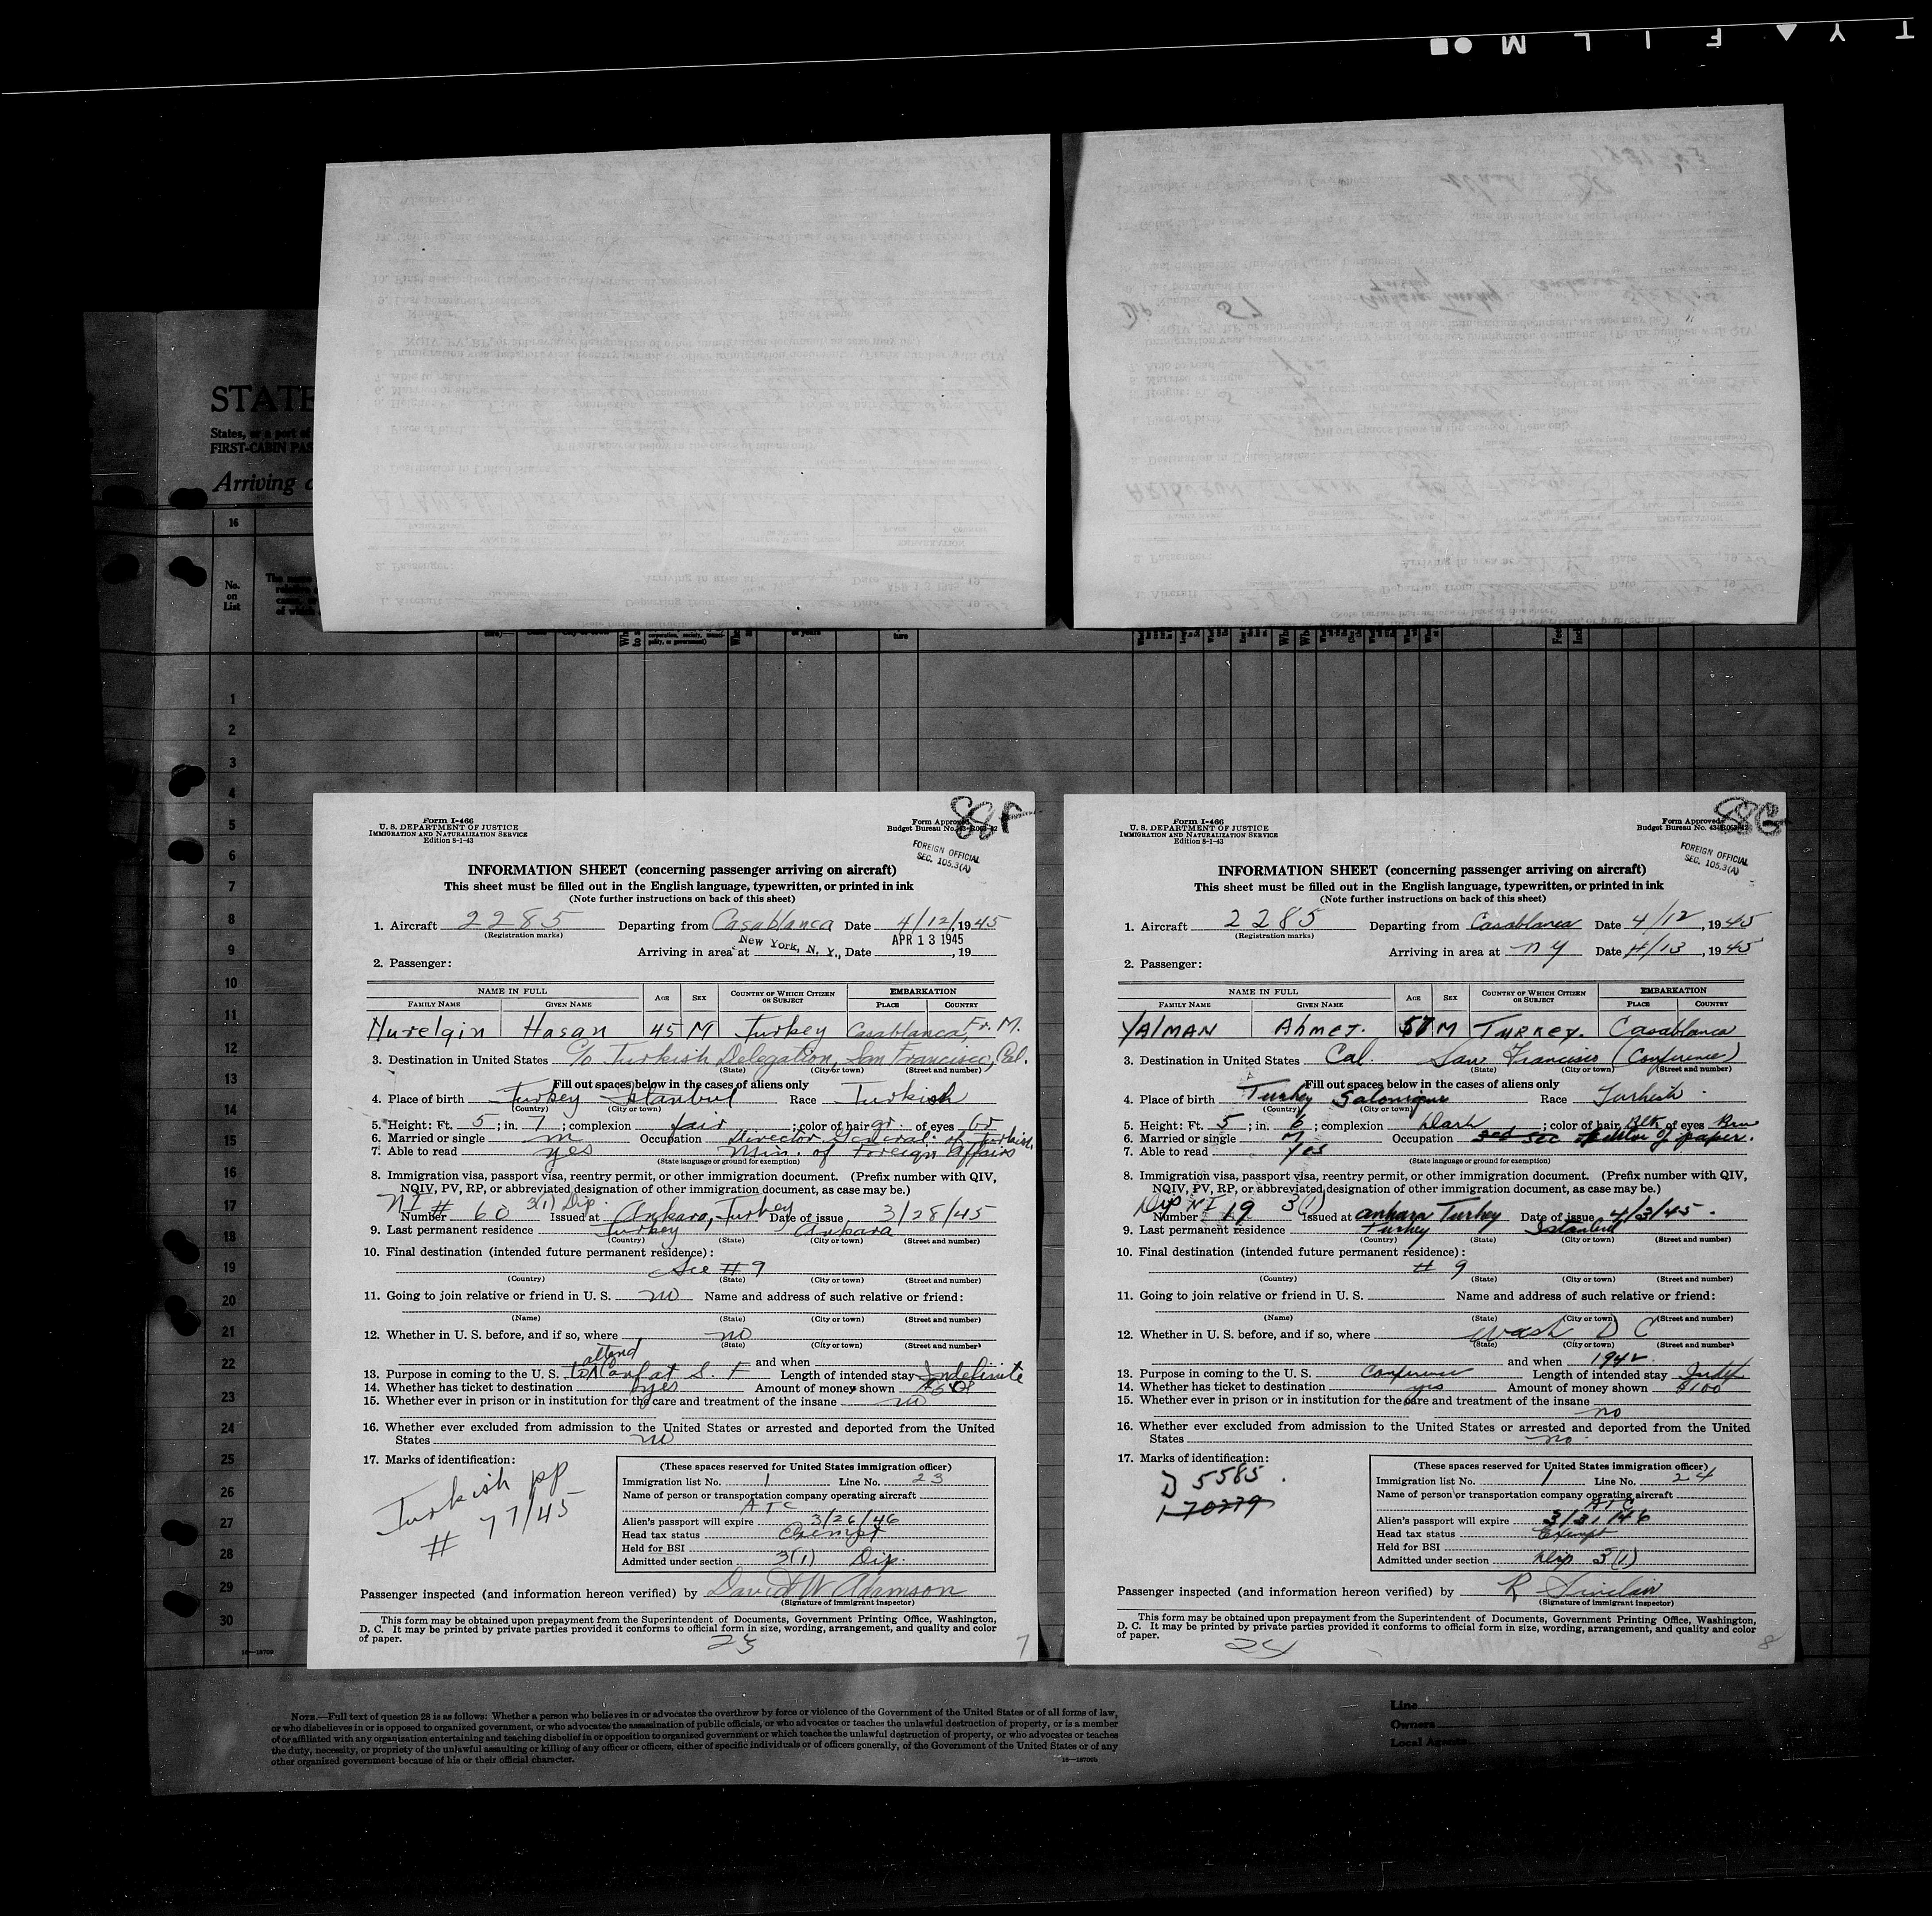 TY ▼ FILM ● ■
STATE
States, or a port of
FIRST-CABIN PAS
Arriving
16
No.
on
List
1
2
3
4
5
6
7
8
9
10
11
12
13
14
15
16
17
18
19
20
21
22
23
24
25
26
27
28
29
30
16—18709
88F
Form I-466
U. S. DEPARTMENT OF JUSTICE
IMMIGRATION AND NATURALIZATION SERVICE
Edition 8-1-43
Form Approved
Budget Bureau No. 43-R063-42
FOREIGN OFFICIAL
SEC. 105.3(A)
INFORMATION SHEET (concerning passenger arriving on aircraft)
This sheet must be filled out in the English language, typewritten, or printed in ink
(Note further instructions on back of this sheet)
1. Aircraft 2285 Departing from Casablanca Date 4/12/, 1945
(Registration marks)
Arriving in area at New York, N. Y., Date APR 13 1945, 19
2. Passenger:
NAME IN FULL AGE SEX COUNTRY OF WHICH CITIZEN OR SUBJECT EMBARKATION
FAMILY NAME GIVEN NAME PLACE COUNTRY
Nurelgin Hasan 45 M Turkey Casablanca, Fr. M.
3. Destination in United States c/o Turkish Delegation, San Francisco, Cal.
(State) (City or town) (Street and number)
Fill out spaces below in the cases of aliens only
4. Place of birth Turkey Istanbul Race Turkish
(Country) (City or town)
5. Height: Ft. 5; in. 7; complexion fair; color of hair gr. of eyes br
6. Married or single m Occupation Director General of Turkish
7. Able to read yes Min. of Foreign Affairs
(State language or ground for exemption)
8. Immigration visa, passport visa, reentry permit, or other immigration document. (Prefix number with QIV,
NQIV, PV, RP, or abbreviated designation of other immigration document, as case may be.)
NI # 3(1) Dip.
Number 60 Issued at Ankara, Turkey Date of issue 3/28/45
9. Last permanent residence Turkey Ankara
(Country) (State) (City or town) (Street and number)
10. Final destination (intended future permanent residence):
See #9
(Country) (State) (City or town) (Street and number)
11. Going to join relative or friend in U. S. no Name and address of such relative or friend:
(Name) (State) (City or town) (Street and number)
12. Whether in U. S. before, and if so, where no
(State) (City or town) (Street and number)
and when
13. Purpose in coming to the U. S. to attend Conf at S. F Length of intended stay Indefinite
14. Whether has ticket to destination yes Amount of money shown
15. Whether ever in prison or in institution for the care and treatment of the insane no
16. Whether ever excluded from admission to the United States or arrested and deported from the United
States no
17. Marks of identification:
Turkish pp
# 77/45
(These spaces reserved for United States immigration officer)
Immigration list No. 1 Line No. 23
Name of person or transportation company operating aircraft
ATC
Alien's passport will expire 3/26/46
Head tax status Exempt
Held for BSI
Admitted under section 3(1) Dip.
Passenger inspected (and information hereon verified) by David W Adamson
(Signature of immigrant inspector)
This form may be obtained upon prepayment from the Superintendent of Documents, Government Printing Office, Washington,
D. C. It may be printed by private parties provided it conforms to official form in size, wording, arrangement, and quality and color
of paper.
23
7
88G
Form I-466
U. S. DEPARTMENT OF JUSTICE
IMMIGRATION AND NATURALIZATION SERVICE
Edition 8-1-43
Form Approved
Budget Bureau No. 43-R063-42
FOREIGN OFFICIAL
SEC. 105.3(A)
INFORMATION SHEET (concerning passenger arriving on aircraft)
This sheet must be filled out in the English language, typewritten, or printed in ink
(Note further instructions on back of this sheet)
1. Aircraft 2285 Departing from Casablanca Date 4/12, 1945
(Registration marks)
Arriving in area at NY Date 4/13, 1945
2. Passenger:
NAME IN FULL AGE SEX COUNTRY OF WHICH CITIZEN OR SUBJECT EMBARKATION
FAMILY NAME GIVEN NAME PLACE COUNTRY
YALMAN Ahmet. 57 M TURKEY. Casablanca
3. Destination in United States Cal. San Francisco (Conference)
(State) (City or town) (Street and number)
Fill out spaces below in the cases of aliens only
4. Place of birth Turkey Salonique Race Turkish
(Country) (City or town)
5. Height: Ft. 5; in. 6; complexion Dark; color of hair Blk of eyes Brn
6. Married or single M Occupation Editor of paper.
7. Able to read Yes
(State language or ground for exemption)
8. Immigration visa, passport visa, reentry permit, or other immigration document. (Prefix number with QIV,
NQIV, PV, RP, or abbreviated designation of other immigration document, as case may be.)
Dip NI 3(1)
Number 19 Issued at Ankara Turkey Date of issue 4/3/45.
9. Last permanent residence Turkey Istanbul
(Country) (State) (City or town) (Street and number)
10. Final destination (intended future permanent residence):
# 9
(Country) (State) (City or town) (Street and number)
11. Going to join relative or friend in U. S. Name and address of such relative or friend:
(Name) (State) (City or town) (Street and number)
12. Whether in U. S. before, and if so, where Wash D C
(State) (City or town) (Street and number)
and when 1942
13. Purpose in coming to the U. S. Conference Length of intended stay Indef
14. Whether has ticket to destination yes Amount of money shown $100
15. Whether ever in prison or in institution for the care and treatment of the insane
no
16. Whether ever excluded from admission to the United States or arrested and deported from the United
States no
17. Marks of identification:
D 5585.
170279
(These spaces reserved for United States immigration officer)
Immigration list No. 1 Line No. 24
Name of person or transportation company operating aircraft
ATC
Alien's passport will expire 3/31/46
Head tax status Exempt
Held for BSI
Admitted under section Dip 3(1)
Passenger inspected (and information hereon verified) by R Sinclair
(Signature of immigrant inspector)
This form may be obtained upon prepayment from the Superintendent of Documents, Government Printing Office, Washington,
D. C. It may be printed by private parties provided it conforms to official form in size, wording, arrangement, and quality and color
of paper.
24
8
NOTE.—Full text of question 28 is as follows: Whether a person who believes in or advocates the overthrow by force or violence of the Government of the United States or of all forms of law,
or who disbelieves in or is opposed to organized government, or who advocates the assassination of public officials, or who advocates or teaches the unlawful destruction of property, or is a member
of or affiliated with any organization entertaining and teaching disbelief in or opposition to organized government or which teaches the unlawful destruction of property, or who advocates or teaches
the duty, necessity, or propriety of the unlawful assaulting or killing of any officer or officers, either of specific individuals or of officers generally, of the Government of the United States or of any
other organized government because of his or their official character.
16—18709b
Line
Owners
Local Agents